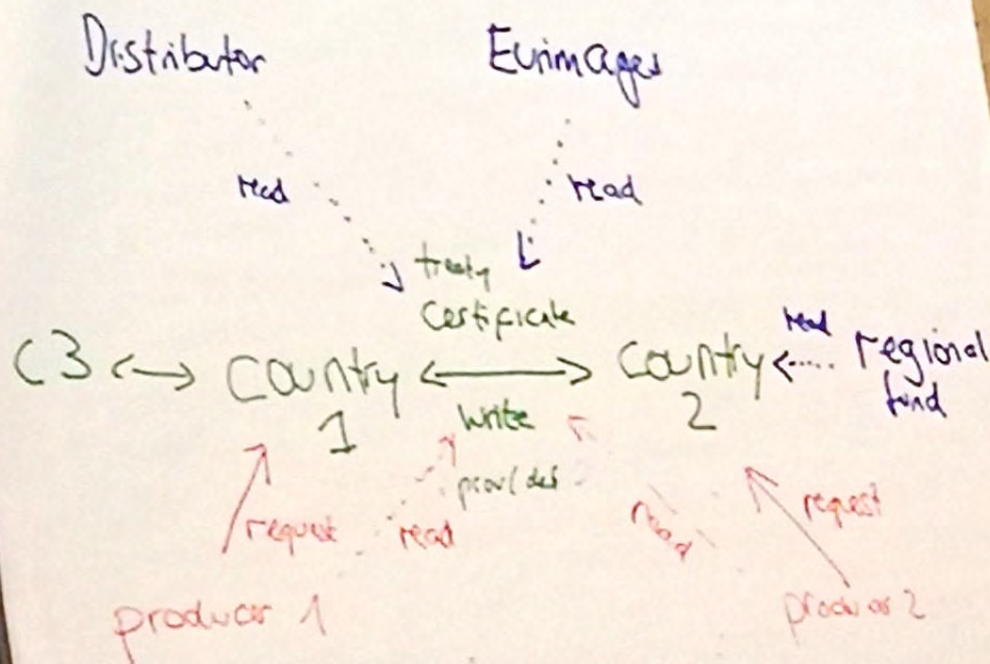 Distributor
Eurimages
read
read
treaty
Certificate
C3
Country
1
Country
2
read
regional
fund
write
provides
request
read
read
request
producer 1
producer 2